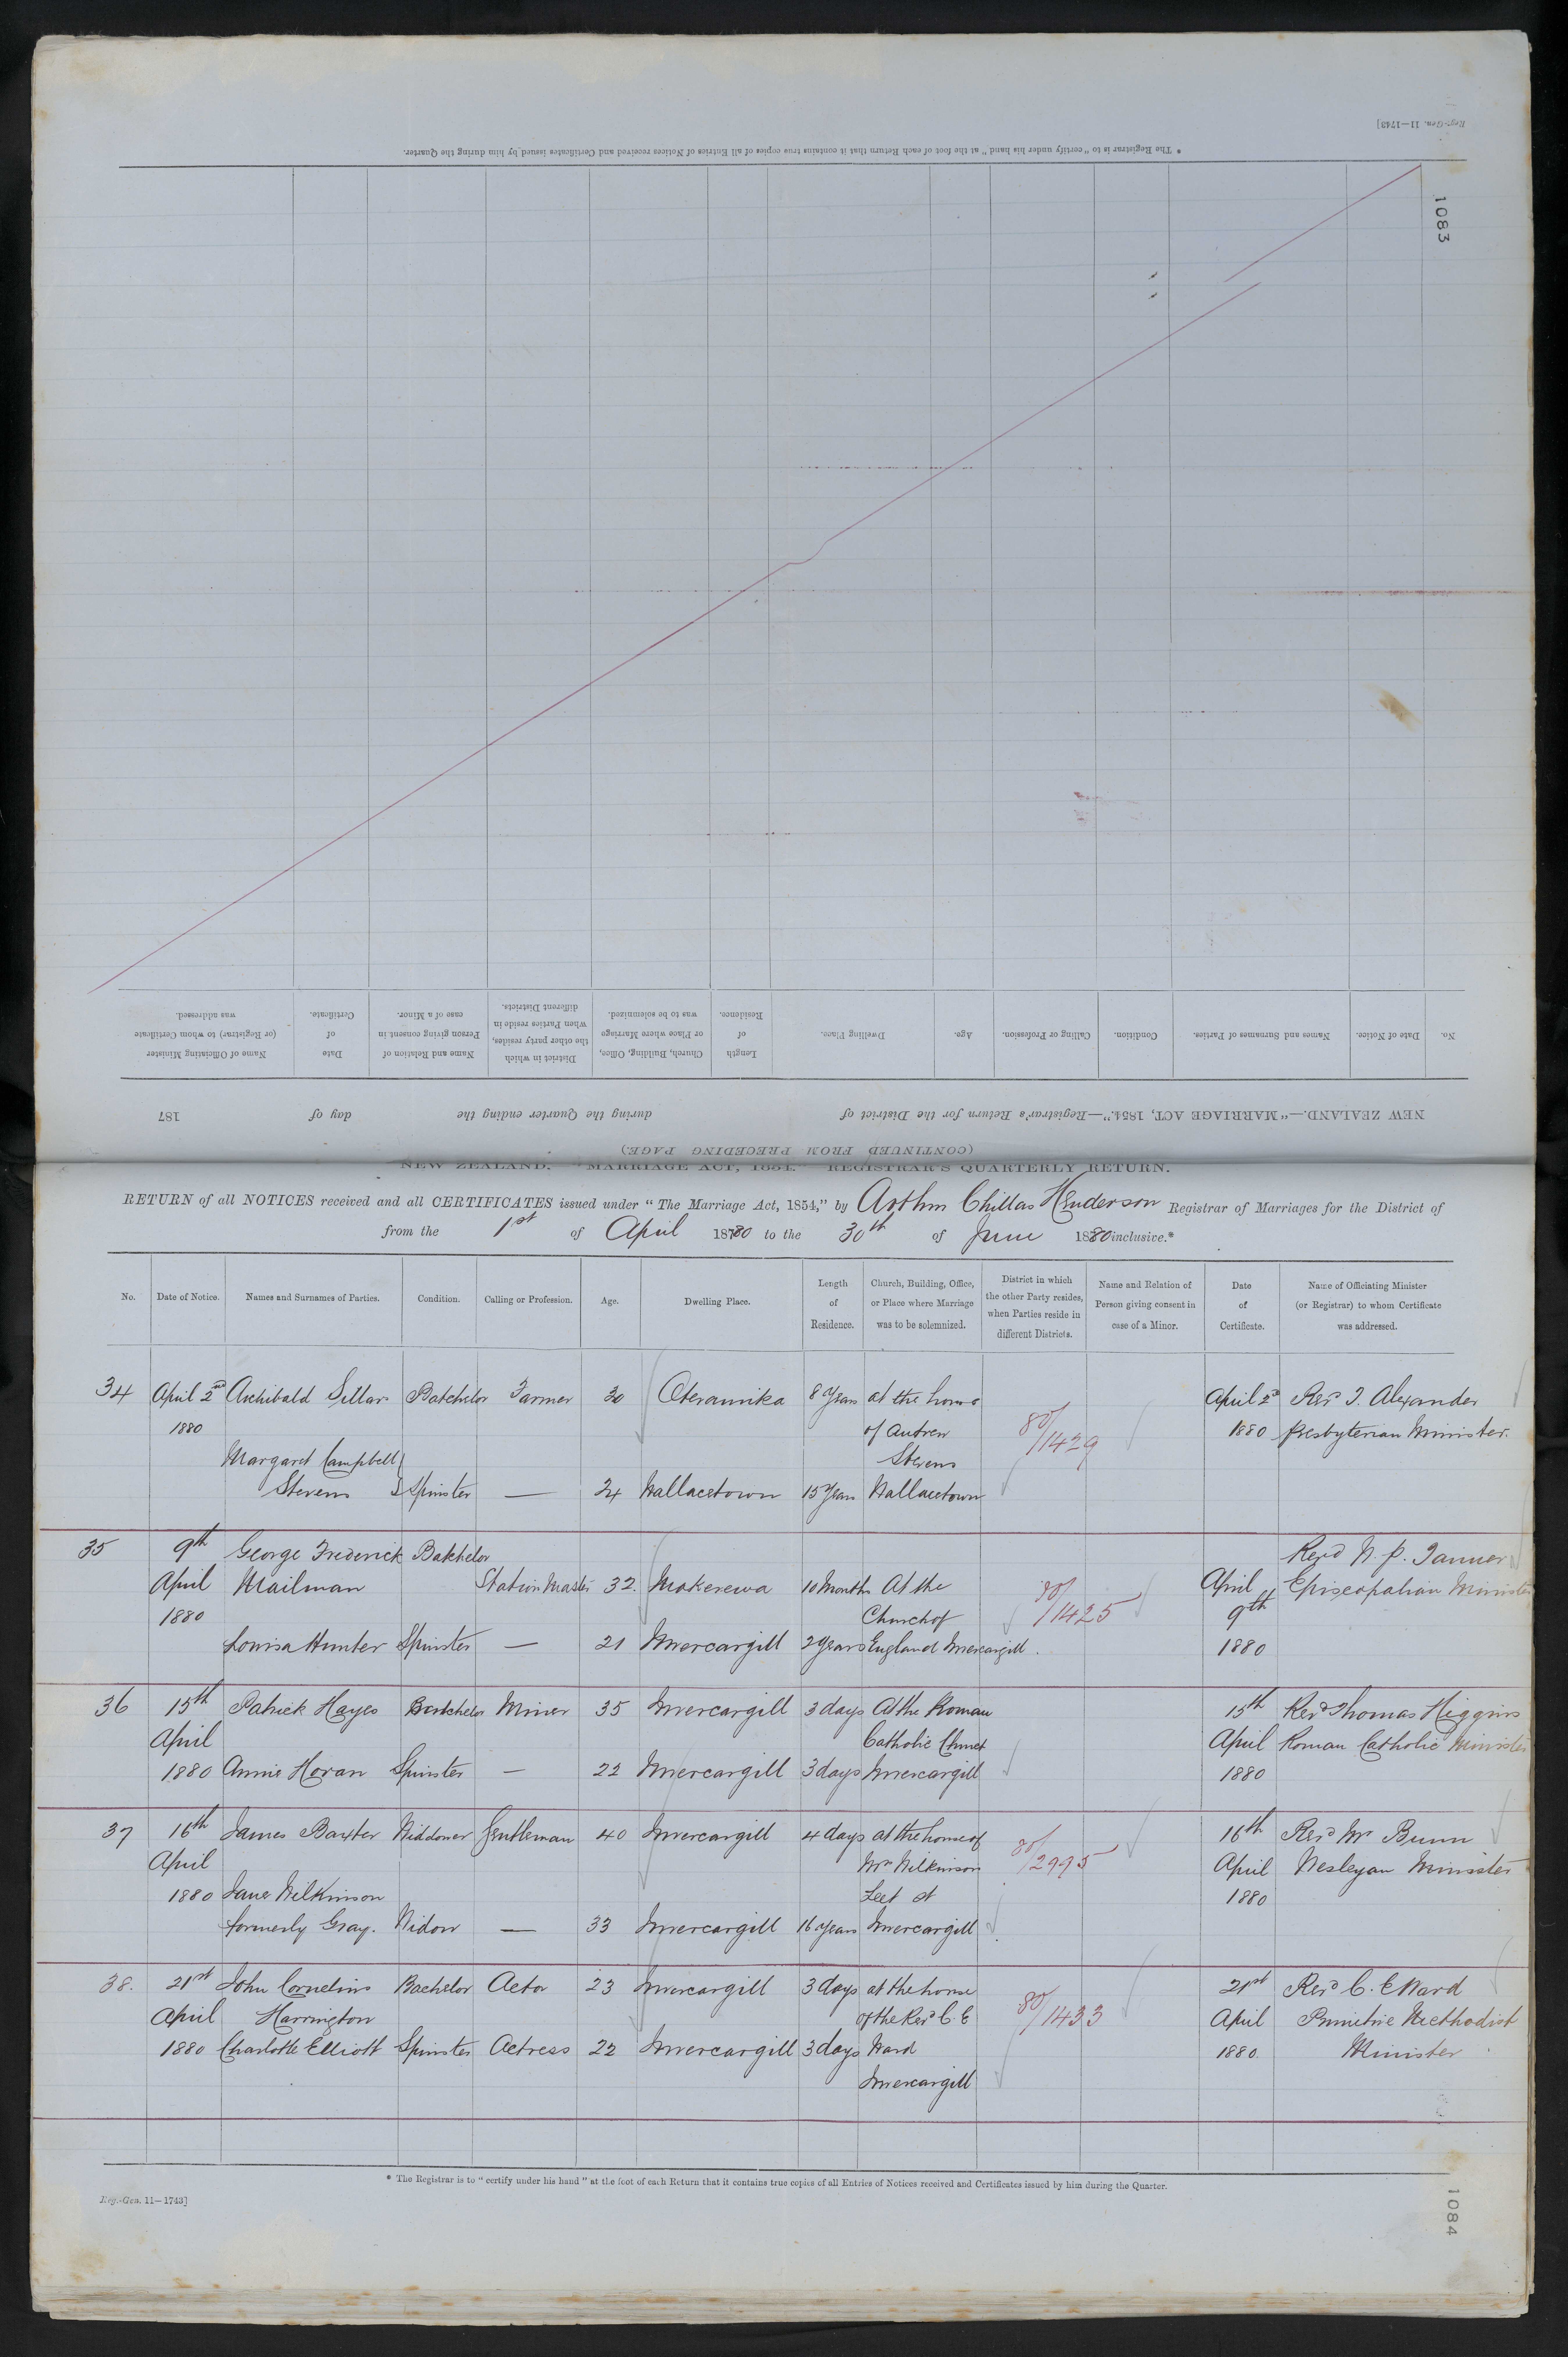 Reg.-Gen. 11—1743]
* The Registrar is to "certify under his hand" at the foot of each Return that it contains true copies of all Entries of Notices received and Certificates issued by him during the Quarter.
1083
No. Date of Notice. Names and Surnames of Parties. Condition. Calling or Profession. Age. Dwelling Place. Length of Residence. Church, Building, Office, or Place where Marriage was to be solemnized. District in which the other party resides, when Parties reside in different Districts. Name and Relation of Person giving consent in case of a Minor. Date of Certificate. Name of Officiating Minister (or Registrar) to whom Certificate was addressed.
NEW ZEALAND.—"MARRIAGE ACT, 1854."—Registrar's Return for the District of during the Quarter ending the day of 187
(CONTINUED FROM PRECEDING PAGE)
NEW ZEALAND. "MARRIAGE ACT, 1854." REGISTRAR'S QUARTERLY RETURN.
RETURN of all NOTICES received and all CERTIFICATES issued under "The Marriage Act, 1854," by Arthur Chillas Henderson Registrar of Marriages for the District of
from the 1st of April 1880 to the 30th of June 1880 inclusive.*
No. Date of Notice. Names and Surnames of Parties. Condition. Calling or Profession. Age. Dwelling Place. Length of Residence. Church, Building, Office, or Place where Marriage was to be solemnized. District in which the other Party resides, when Parties reside in different Districts. Name and Relation of Person giving consent in case of a Minor. Date of Certificate. Name of Officiating Minister (or Registrar) to whom Certificate was addressed.
34 April 2nd Archibald Sillar Batchelor Farmer 30 Oteramika 8 Years at the home April 2d Revd T. Alexander
1880 of Andrew 80/1429 1880 Presbyterian Minister.
Margaret Campbell Stevens
Stevens Spinster — 24 Wallacetown 15 Years Wallacetown
35 9th George Frederick Batchelor Revd W. P. Tanner
April Mailman Station Master 32. Makerewa 10 Months At the 80/1425 April Episcopalian Minister
1880 Church of 9th
Louisa Hunter Spinster — 21 Invercargill 2 Years England Invercargill. 1880
36 15th Patrick Hayes Batchelor Miner 35 Invercargill 3 days At the Roman 15th Revd Thomas Higgins
April Catholic Church April Roman Catholic Minister
1880 Annie Horan Spinster — 22 Invercargill 3 days Invercargill 1880
37 16th James Baxter Widdower Gentleman 40 Invercargill 4 days at the house of 16th Revd Mr Bunn
April Mrs Wilkinson 80/2995 April Wesleyan Minister
1880 Jane Wilkinson Leet St 1880
formerly Gray. Widow — 33 Invercargill 16 years Invercargill
38. 21st John Cornelius Bachelor Actor 23 Invercargill 3 days at the house 21st Revd C. E Ward
April Harrington of the Revd C. E 80/1433 April Primitive Methodist
1880 Charlotte Elliott Spinster Actress 22 Invercargill 3 days Ward 1880. Minister
Invercargill
* The Registrar is to "certify under his hand" at the foot of each Return that it contains true copies of all Entries of Notices received and Certificates issued by him during the Quarter.
Reg.-Gen. 11—1743]
1084